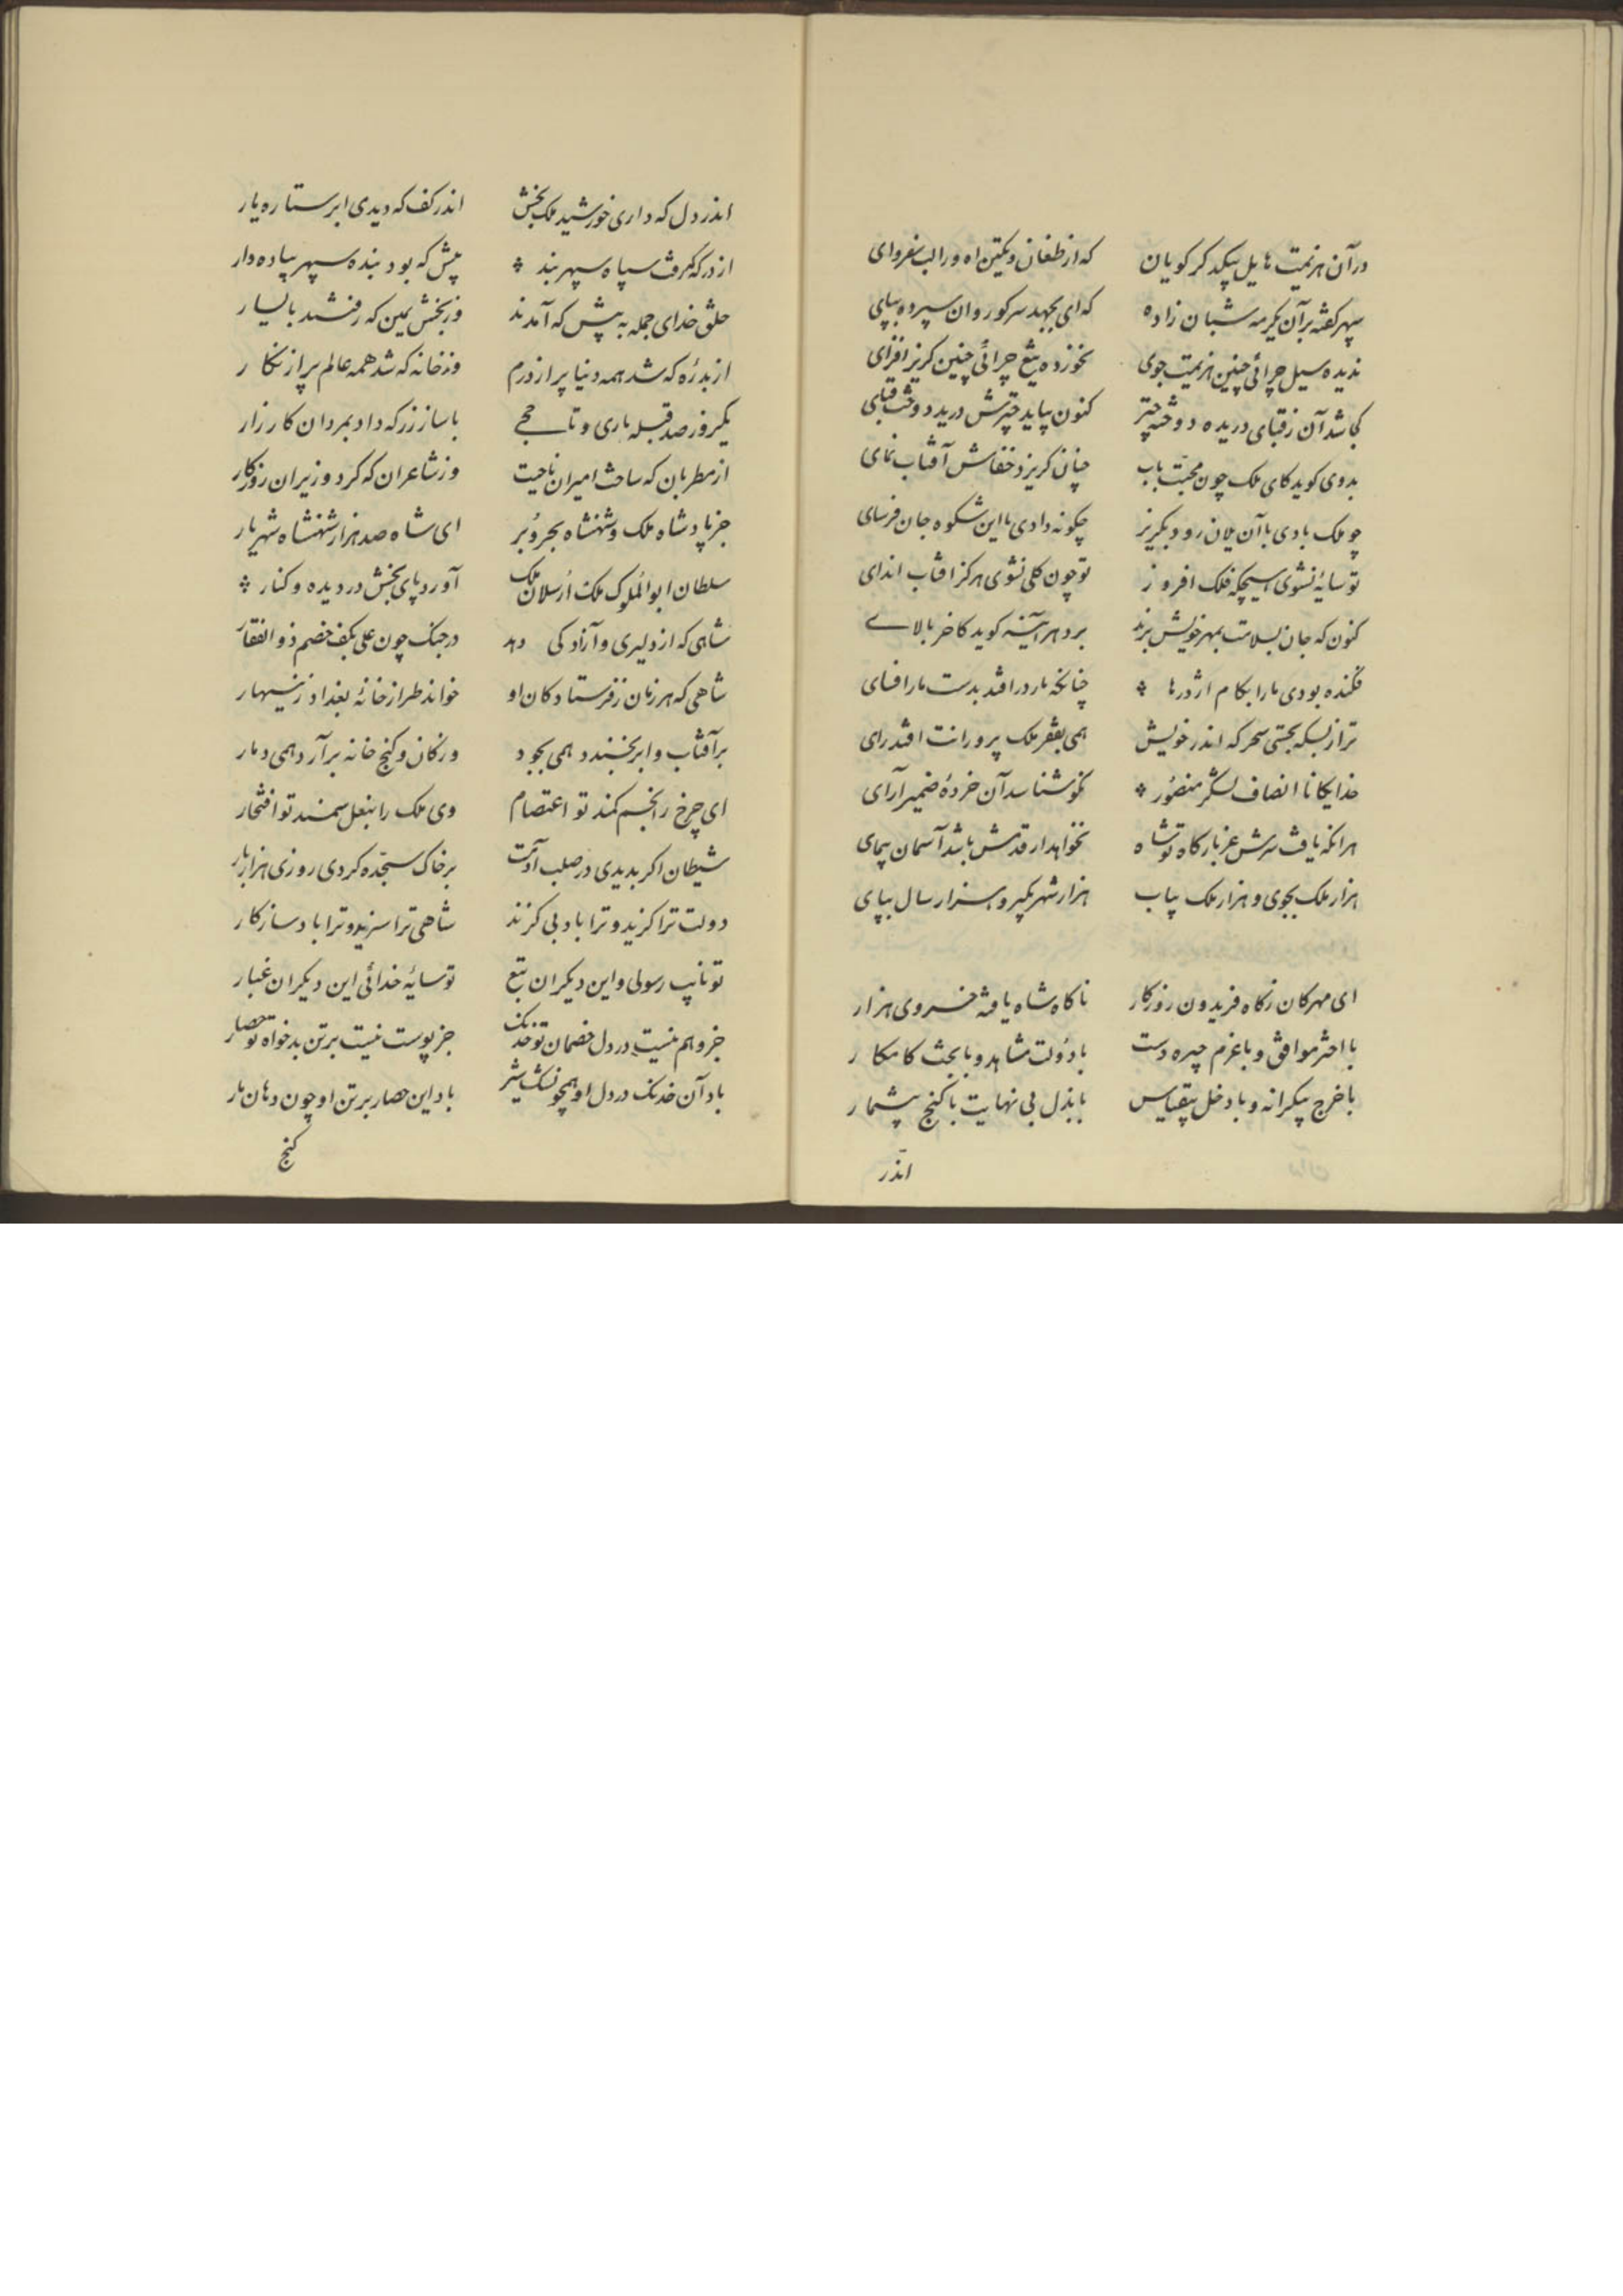 درآن هزیمت هایل بیکدکر کویان که از طغان و تکین اه و رالب بغروای
سپهر کفته برآن یکرمه شبان زاده که ای بجهد سرکور وان سپرده بپای
ندیده سیل چرائی چنین هزیمت جوی نخورده تیغ چرائی چنین کریز افزای
کجا شد آن زقبای دریده دوخته چتر کنون بیاید چترش درید و دوخت قبای
بدوی کوید کای ملک چون محبت باب چنان کریزد خفاش آفتاب نمای
چو ملک بادی باآن یلان رود بکریز چکونه دادی بااین شکوه جان فرسای
تو سایهٔ نشوی هیچکه فلک افروز تو چون کلی نشوی هرکز افتاب اندای
کنون که جان بسلامت بمهر خویش برند برد هرآینه کوید کاخر بالای
فکنده بودی مارا بکام اژدرها چنانکه مار درافتد بدست مارافسای
ترا زبسکه بجستی سحرکه اندر خویش همی بقفر ملک پرورانت افتد رای
خدایکانا انصاف لشکر منصور نکو شناسد آن خردهٔ ضمیرآرای
هرانکه یافت سرش عز بارکاه تو شاه نخواهد ار قدمش باشد آسمان پیمای
هزار ملک بجوی و هزار ملک بیاب هزار شهر بکیر و هزار سال بپای
ای مهرکان زکاه فریدون روزکار ناکاه شاه یافته خسروی هزار
با اختر موافق و باعزم چیره دست بادولت مشاهد و بابخت کامکار
باخرج بیکرانه و بادخل بیقیاس بابذل بی نهایت باکنج بیشمار
اندر
اندر دل که داری خورشید ملک بخش اندر کف که دیدی ابر ستاره یار
از درکه کرفت سپاه سپهر بند پیش که بود بنده سپهر پیاده دار
خلق خدای جمله به پیش که آمدند وز بخشش یمین که رفتند بالیسار
از بدره که شد همه دنیا پر از درم وز خانه که شد همه عالم پر از نکار
یکروز صد قبله باری و تا حجی باساز زر که داد بمردان کارزار
از مطربان که ساخت امیران ناحیت وز شاعران که کرد وزیران روزکار
جز پادشاه ملک و شهنشاه بحر و بر ای شاه صد هزار شهنشاه شهریار
سلطان ابوالملوک ملک ارسلان ملک آورد پای بخش در دیده و کنار
شاهی که از دلیری و آزادکی دهد در جنک چون علی بکف خصم ذوالفقار
شاهی که هر زمان ز فرستادکان او خواند طراز خانهٔ بغداد زینهار
برآفتاب و ابر بخندد همی بجود وز کان و کنج خانه برآرد همی دمار
ای چرخ را بخم کمند تو اعتصام وی ملک را بنعل سمند تو افتخار
شیطان اکر بدیدی در صلب آدمت برخاک سجده کردی روزی هزار بار
دولت ترا کزید و ترا باد بی کزند شاهی ترا سزید و ترا باد سازکار
تو نایب رسولی و این دیکران تبع تو سایهٔ خدائی این دیکران غبار
جز واهم نیست در دل خصمان تو خدنک جز پوست نیست برتن بدخواه تو حصار
باد آن خدنک در دل او همچو نیش شیر باد این حصار برتن او چون دهان مار
کنج